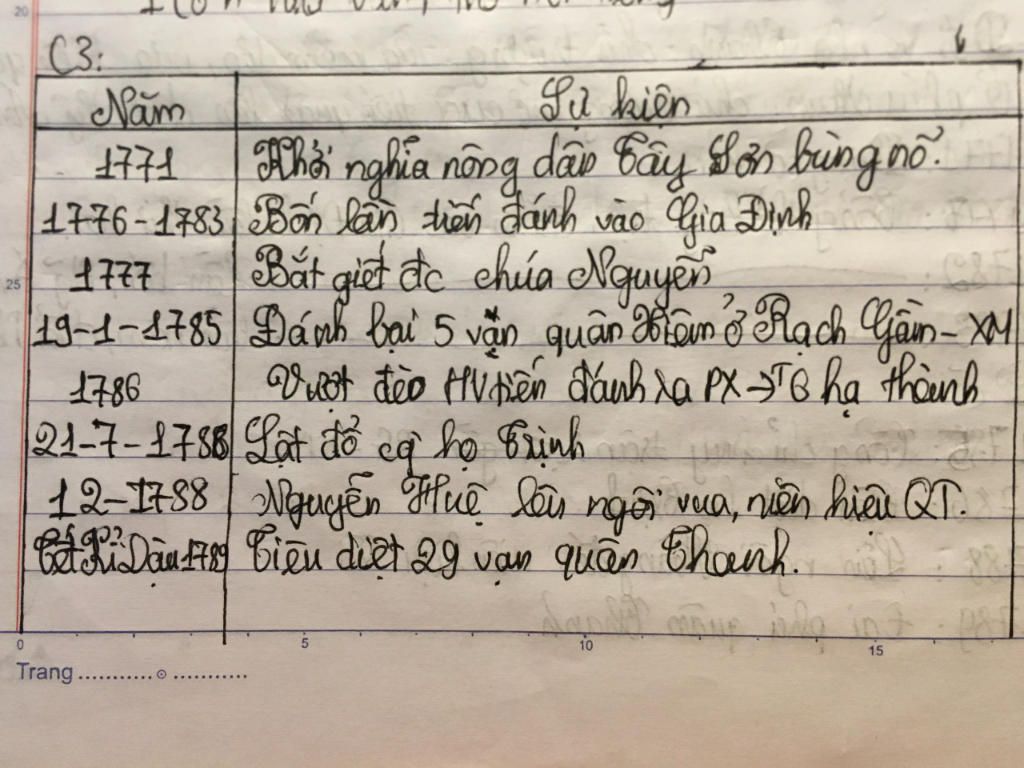 20
C3:
Năm Sự kiện
1771 Khởi nghĩa nông dân Tây Sơn bùng nổ.
1776-1783 Bốn lần tiến đánh vào Gia Định
25
1777 Bắt giết đc chúa Nguyễn
19-1-1785 Đánh bại 5 vạn quân Xiêm ở Rạch Gầm-XM
1786 Vượt đèo HV tiến đánh ra PX→TB hạ thành
21-7-1786 Lật đổ cq họ Trịnh
12-1788 Nguyễn Huệ lên ngôi vua, niên hiệu QT.
Tết Kỉ Dậu 1789 Tiêu diệt 29 vạn quân Thanh.
0 5 10 15
Trang